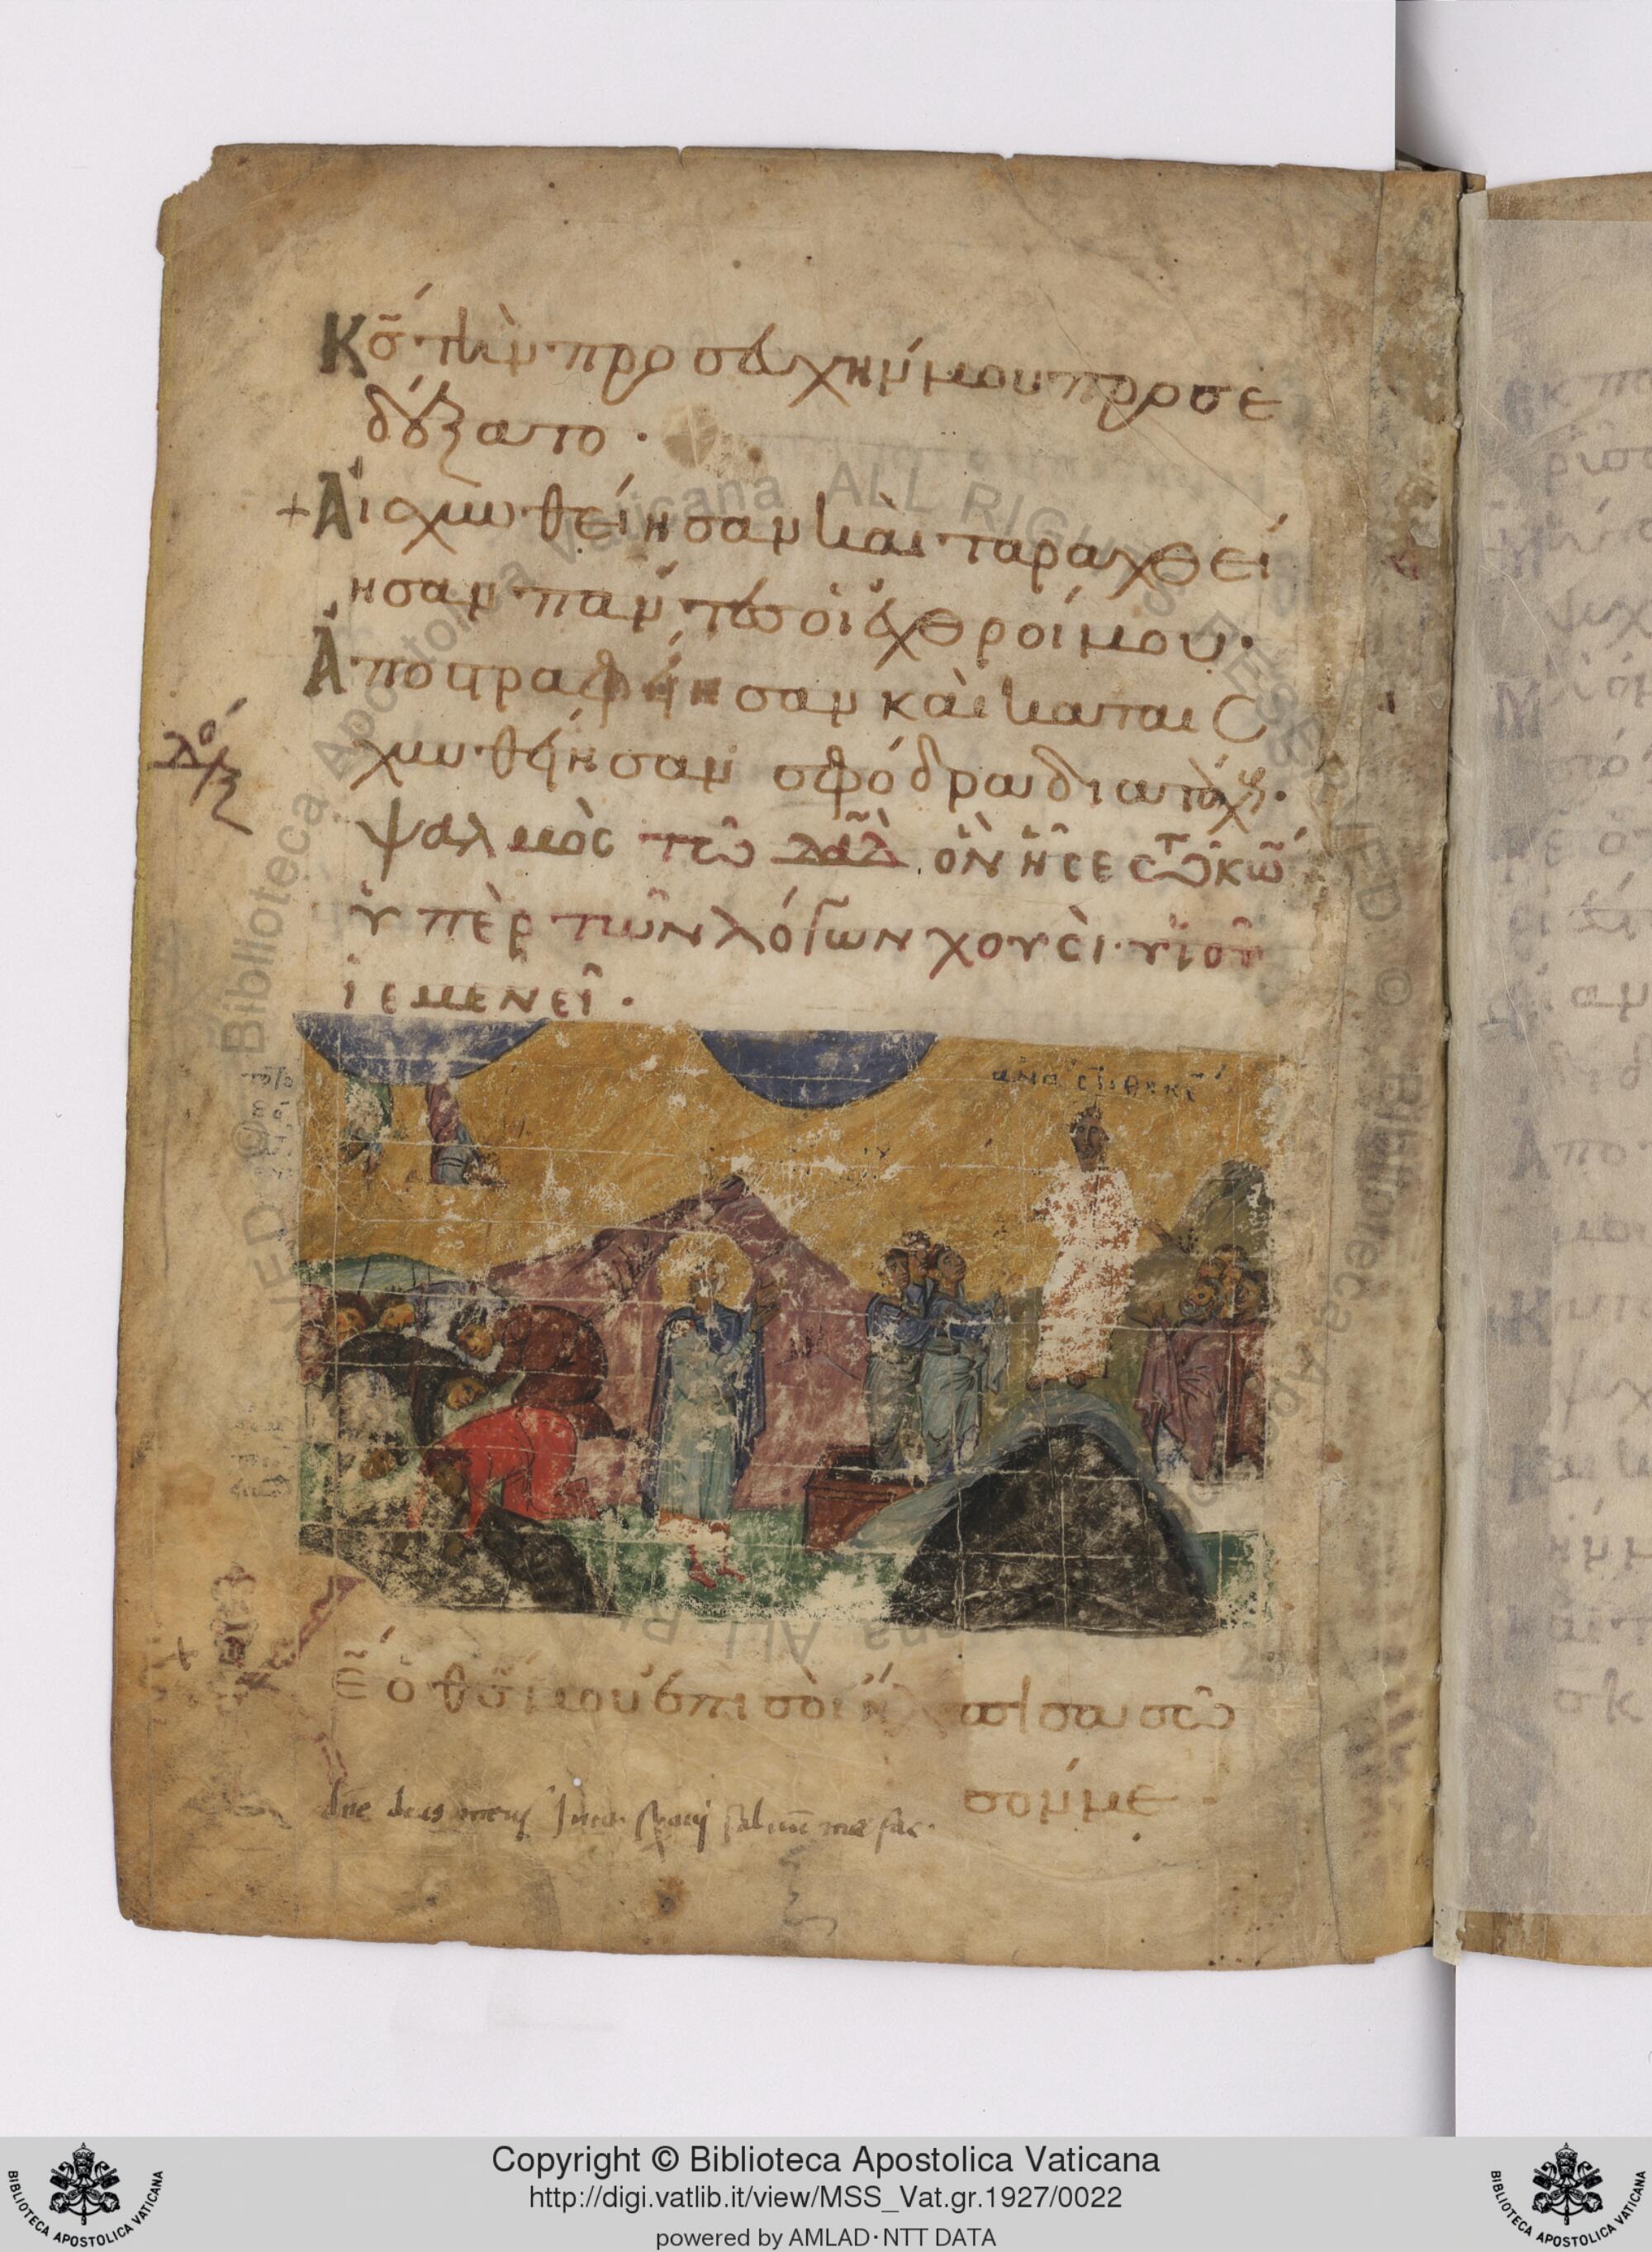 Κς̄ τὴν προσευχήν μου προσε
δέξατο·
+ Αἰσχυνθείησαν καὶ ταραχθεί
ησαν πάντες οἱ ἐχθροί μου·
Ἀποστραφείησαν καὶ καταισ
χυνθείησαν σφόδρα διὰ τάχους·
ψαλμὸς τῶ δᾱδ̄ ὃν ἦσε τῶ κω̄
ὑπὲρ τῶν λόγων χουσὶ υἱοῦ
ἱεμενεῖ·
Κε̄ ὁ θς̄ μου ἐπὶ σοὶ ἤλπισα σῶ
σόν με·
dne deus meus in te speravi salvum me fac
Copyright © Biblioteca Apostolica Vaticana
http://digi.vatlib.it/view/MSS_Vat.gr.1927/0022
powered by AMLAD·NTT DATA
BIBLIOTECA APOSTOLICA VATICANA
BIBLIOTECA APOSTOLICA VATICANA